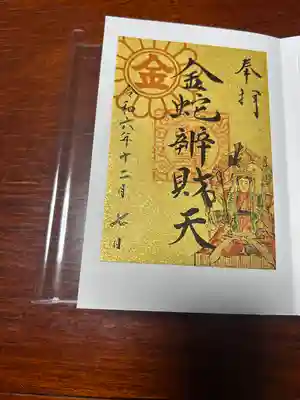 奉拝
金蛇辨財天
令和六年十二月 日
金